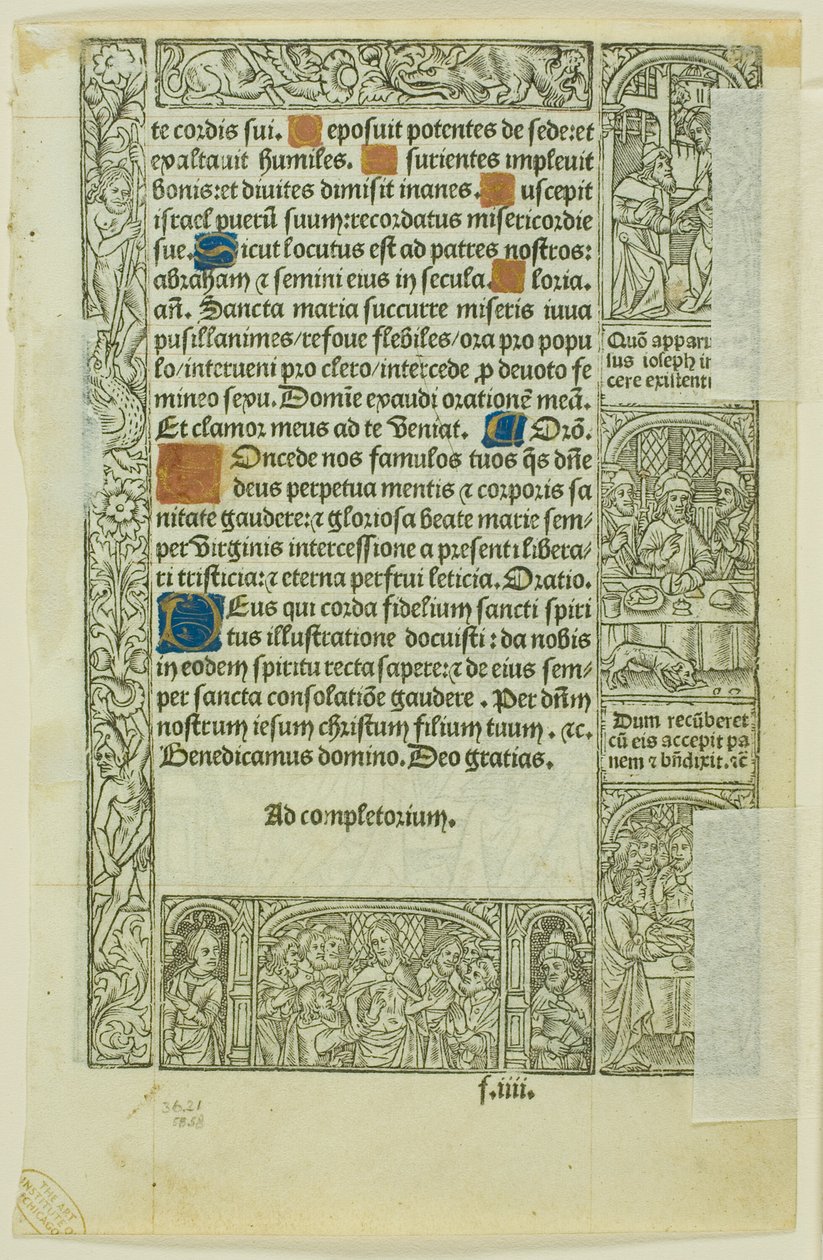 te cordis sui. D eposuit potentes de sede:et
exaltauit humiles. E surientes impleuit
bonis:et diuites dimisit inanes. S uscepit
israel puerū suum:recordatus misericordie
sue. Sicut locutus est ad patres nostros:
abraham ⁊ semini eius in secula. G loria.
añ. Sancta maria succurre miseris iuua
pusillanimes/refoue flebiles/ora pro popu
lo/interueni pro clero/intercede ꝓ deuoto fe
mineo sexu. Domīe exaudi orationē meā.
Et clamor meus ad te veniat. Orō.
Oncede nos famulos tuos q̄s dn̄e
deus perpetua mentis ⁊ corporis sa
nitate gaudere:⁊ gloriosa beate marie sem-
per virginis intercessione a presenti libera-
ri tristicia:⁊ eterna perfrui leticia. Oratio.
DEus qui corda fidelium sancti spiri
tus illustratione docuisti : da nobis
in eodem spiritu recta sapere:⁊ de eius sem-
per sancta consolatiōe gaudere . Per dn̄m
nostrum iesum christum filium tuum . ⁊c.
Benedicamus domino. Deo gratias.
Ad completorium.
Quō apparu
ius ioseph in
cere existenti
Dum recūberet
cū eis accepit pa
nem ⁊ bn̄dixit. ⁊c̄
f.iiii.
36.21
58.58
THE ART
INSTITUTE OF
CHICAGO